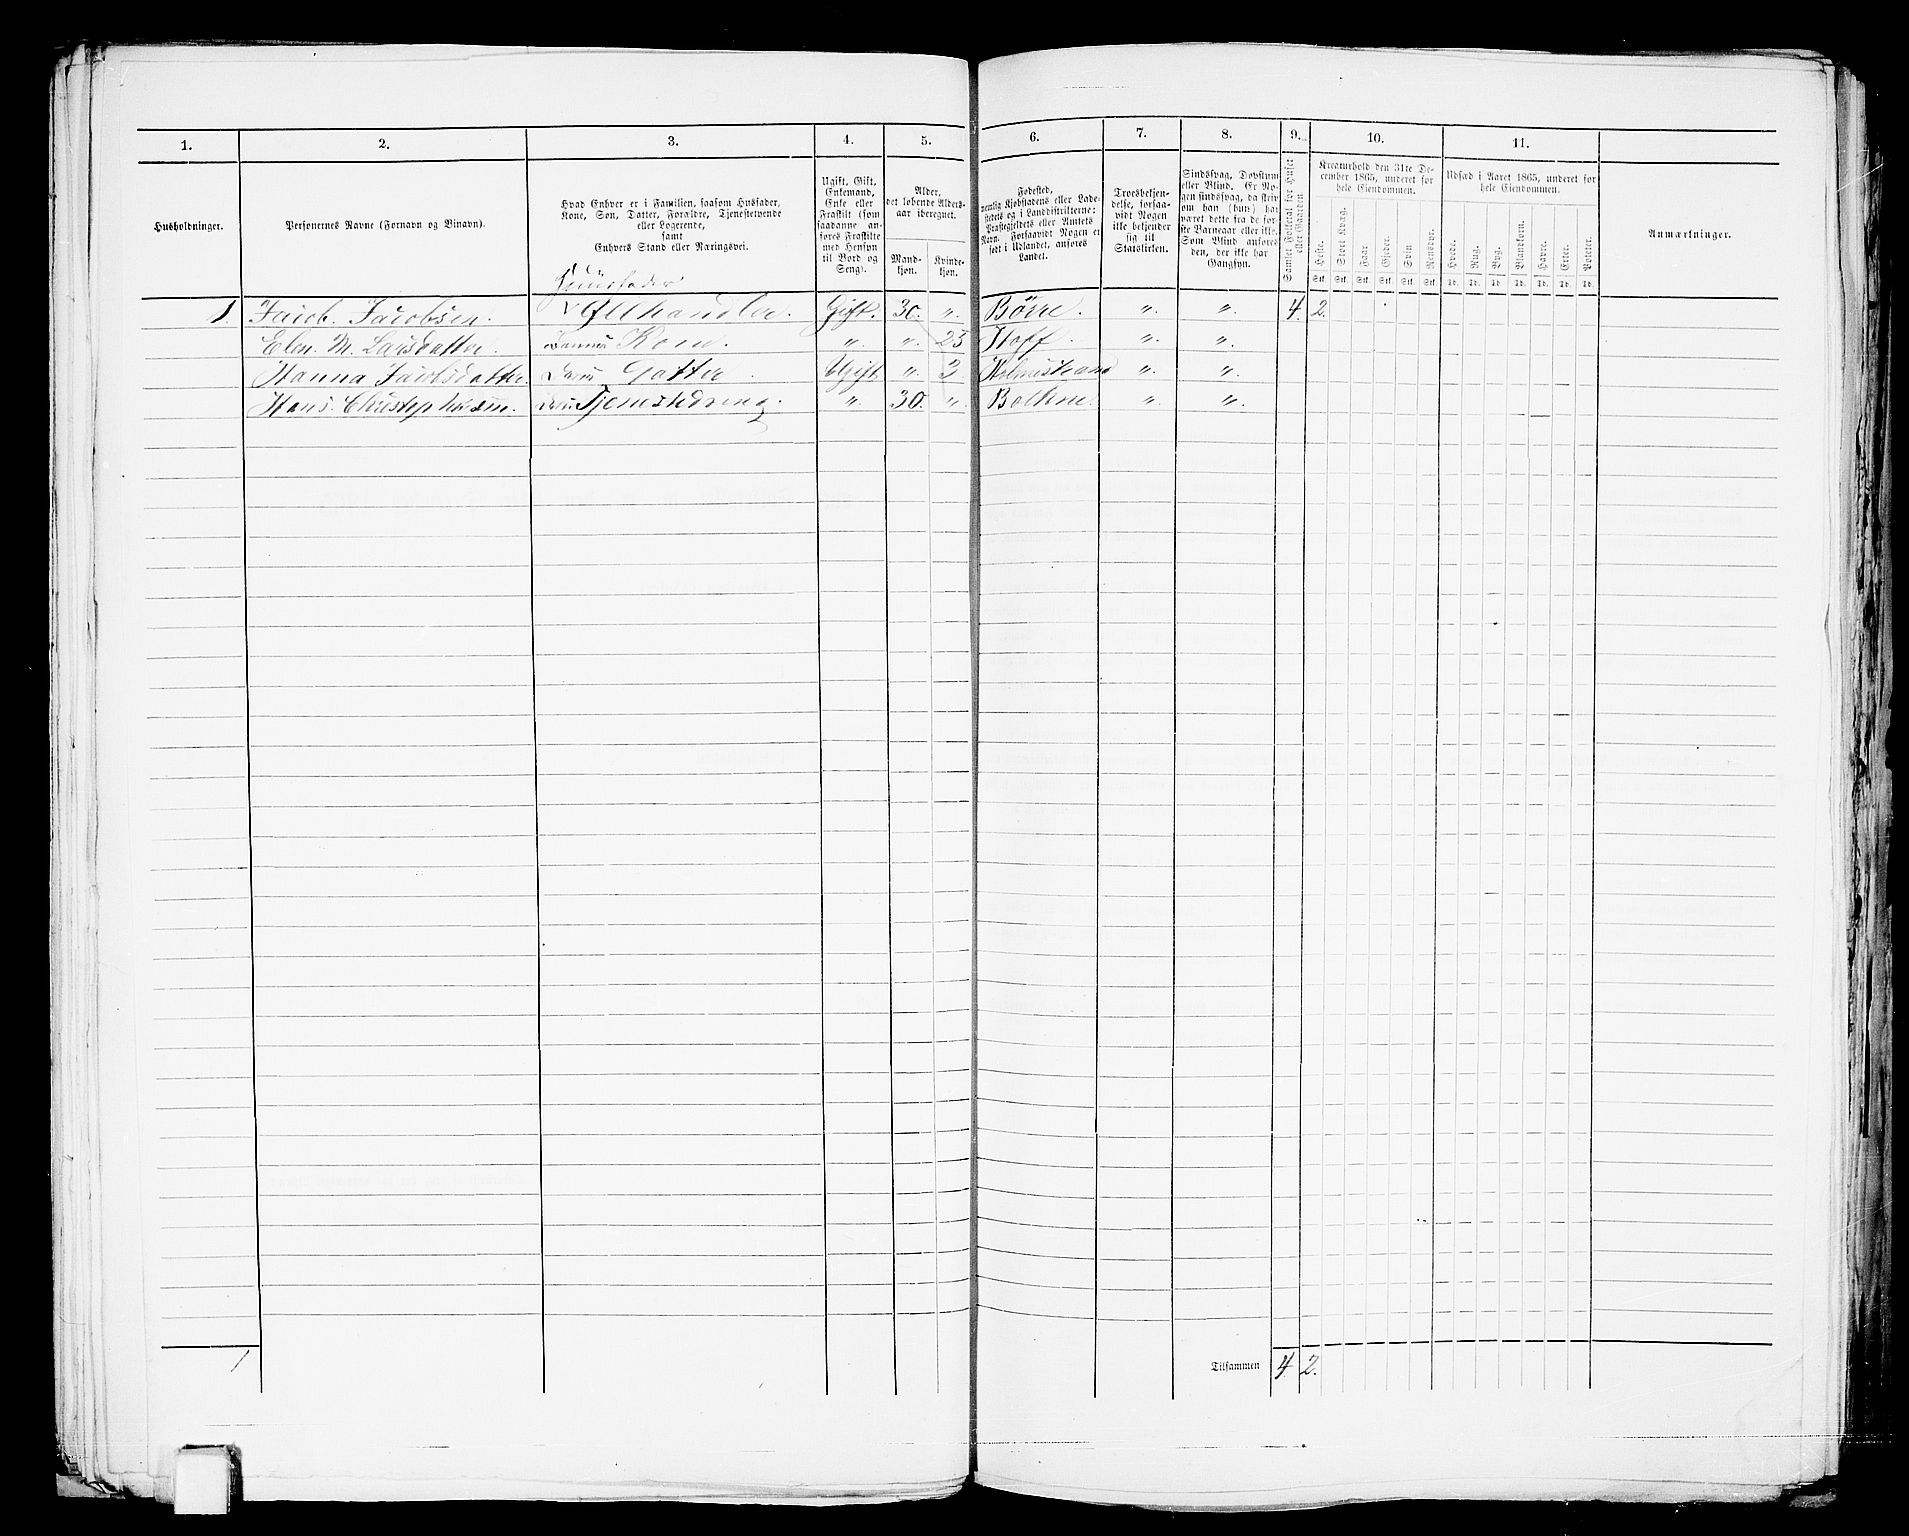 1. 2. 3. 4. 5. 6. 7. 8. 9. 10. 11.
Husholdninger.
Personernes Navne (Fornavn og Binavn).
Hvad Enhver er i Familien, saasom Husfader,
Kone, Søn, Datter, Forældre, Tjenestetyende
eller Logerende,
samt
Enhvers Stand eller Næringsvei.
Ugift, Gift,
Enkemand,
Enke eller
Fraskilt (som
saadanne an-
føres Fraskilte
med Hensyn
til Bord og
Seng).
Alder,
det løbende Alders-
aar iberegnet.
Mand-
kjøn.
Kvinde-
kjøn.
Fødested,
nemlig Kjøbstadens eller Lade-
stedets og i Landdistrikterne:
Præstegjeldets eller Amtets
Navn. Forsaavidt Nogen er
født i Udlandet, anføres
Landet.
Troesbekjen-
delse, forsaa-
vidt Nogen
ikke bekjender
sig til
Statskirken.
Sindssvag, Døvstum
eller Blind. Er No-
gen sindssvag, da skriv
om han (hun) har
været dette fra de før-
ste Barneaar eller ikke.
Som Blind anføres
den, der ikke har
Gangsyn.
Samlet Folketal for Huset
eller Gaarden
Kreaturhold den 31te De-
cember 1865, underet for
hele Eiendommen.
Heste.
Stort Kvæg.
Faar
Gjeder.
Svin
Rensdyr.
Stk. Stk. Stk. Stk. Stk. Stk.
Udsæd i Aaret 1865, underet for
hele Eiendommen.
Hvede.
Rug.
Byg.
Blandkorn.
Havre.
Erter.
Poteter.
Td. Td. Td. Td. Td. Td. Td.
Anmærkninger.
Huusfader
1. Jacob. Jacobsen. Ølhandler. Gift. 30. „. Børre. „. „. 4. 2.
Elen. M. Larsdatter Kone. „. „. 25 Hoff. „. „.
Hanna Jacobsdatter. Datter Ugift „. 3 Holmestrand „. „.
Hans. Christophersen. „. 30. „. Bothne. „. „.
1 Tilsammen 4 2.